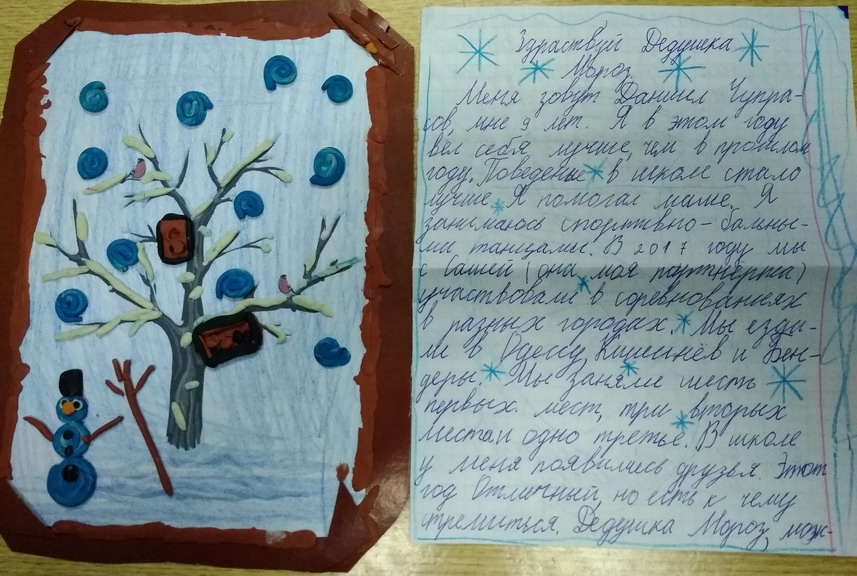 Здраствуй Дедушка
Мороз.
Меня зовут Даниил Чупра-
сов, мне 9 лет. Я в этом году
вел себя лучше, чем в прошлом
году. Поведение в школе стало
лучше. Я помогал маме. Я
занимаюсь спортивно-бальны-
ми танцами. В 2017 году мы
с Сашей (она моя партнёрша)
участвовали в соревнованиях
в разных городах. Мы езди-
ли в Одессу, Кишинёв и Бен-
деры. Мы заняли шесть
первых мест, три вторых
места и одно третье. В школе
у меня появились друзья. Этот
год Отличный, но есть к чему
стремиться. Дедушка Мороз, мож-